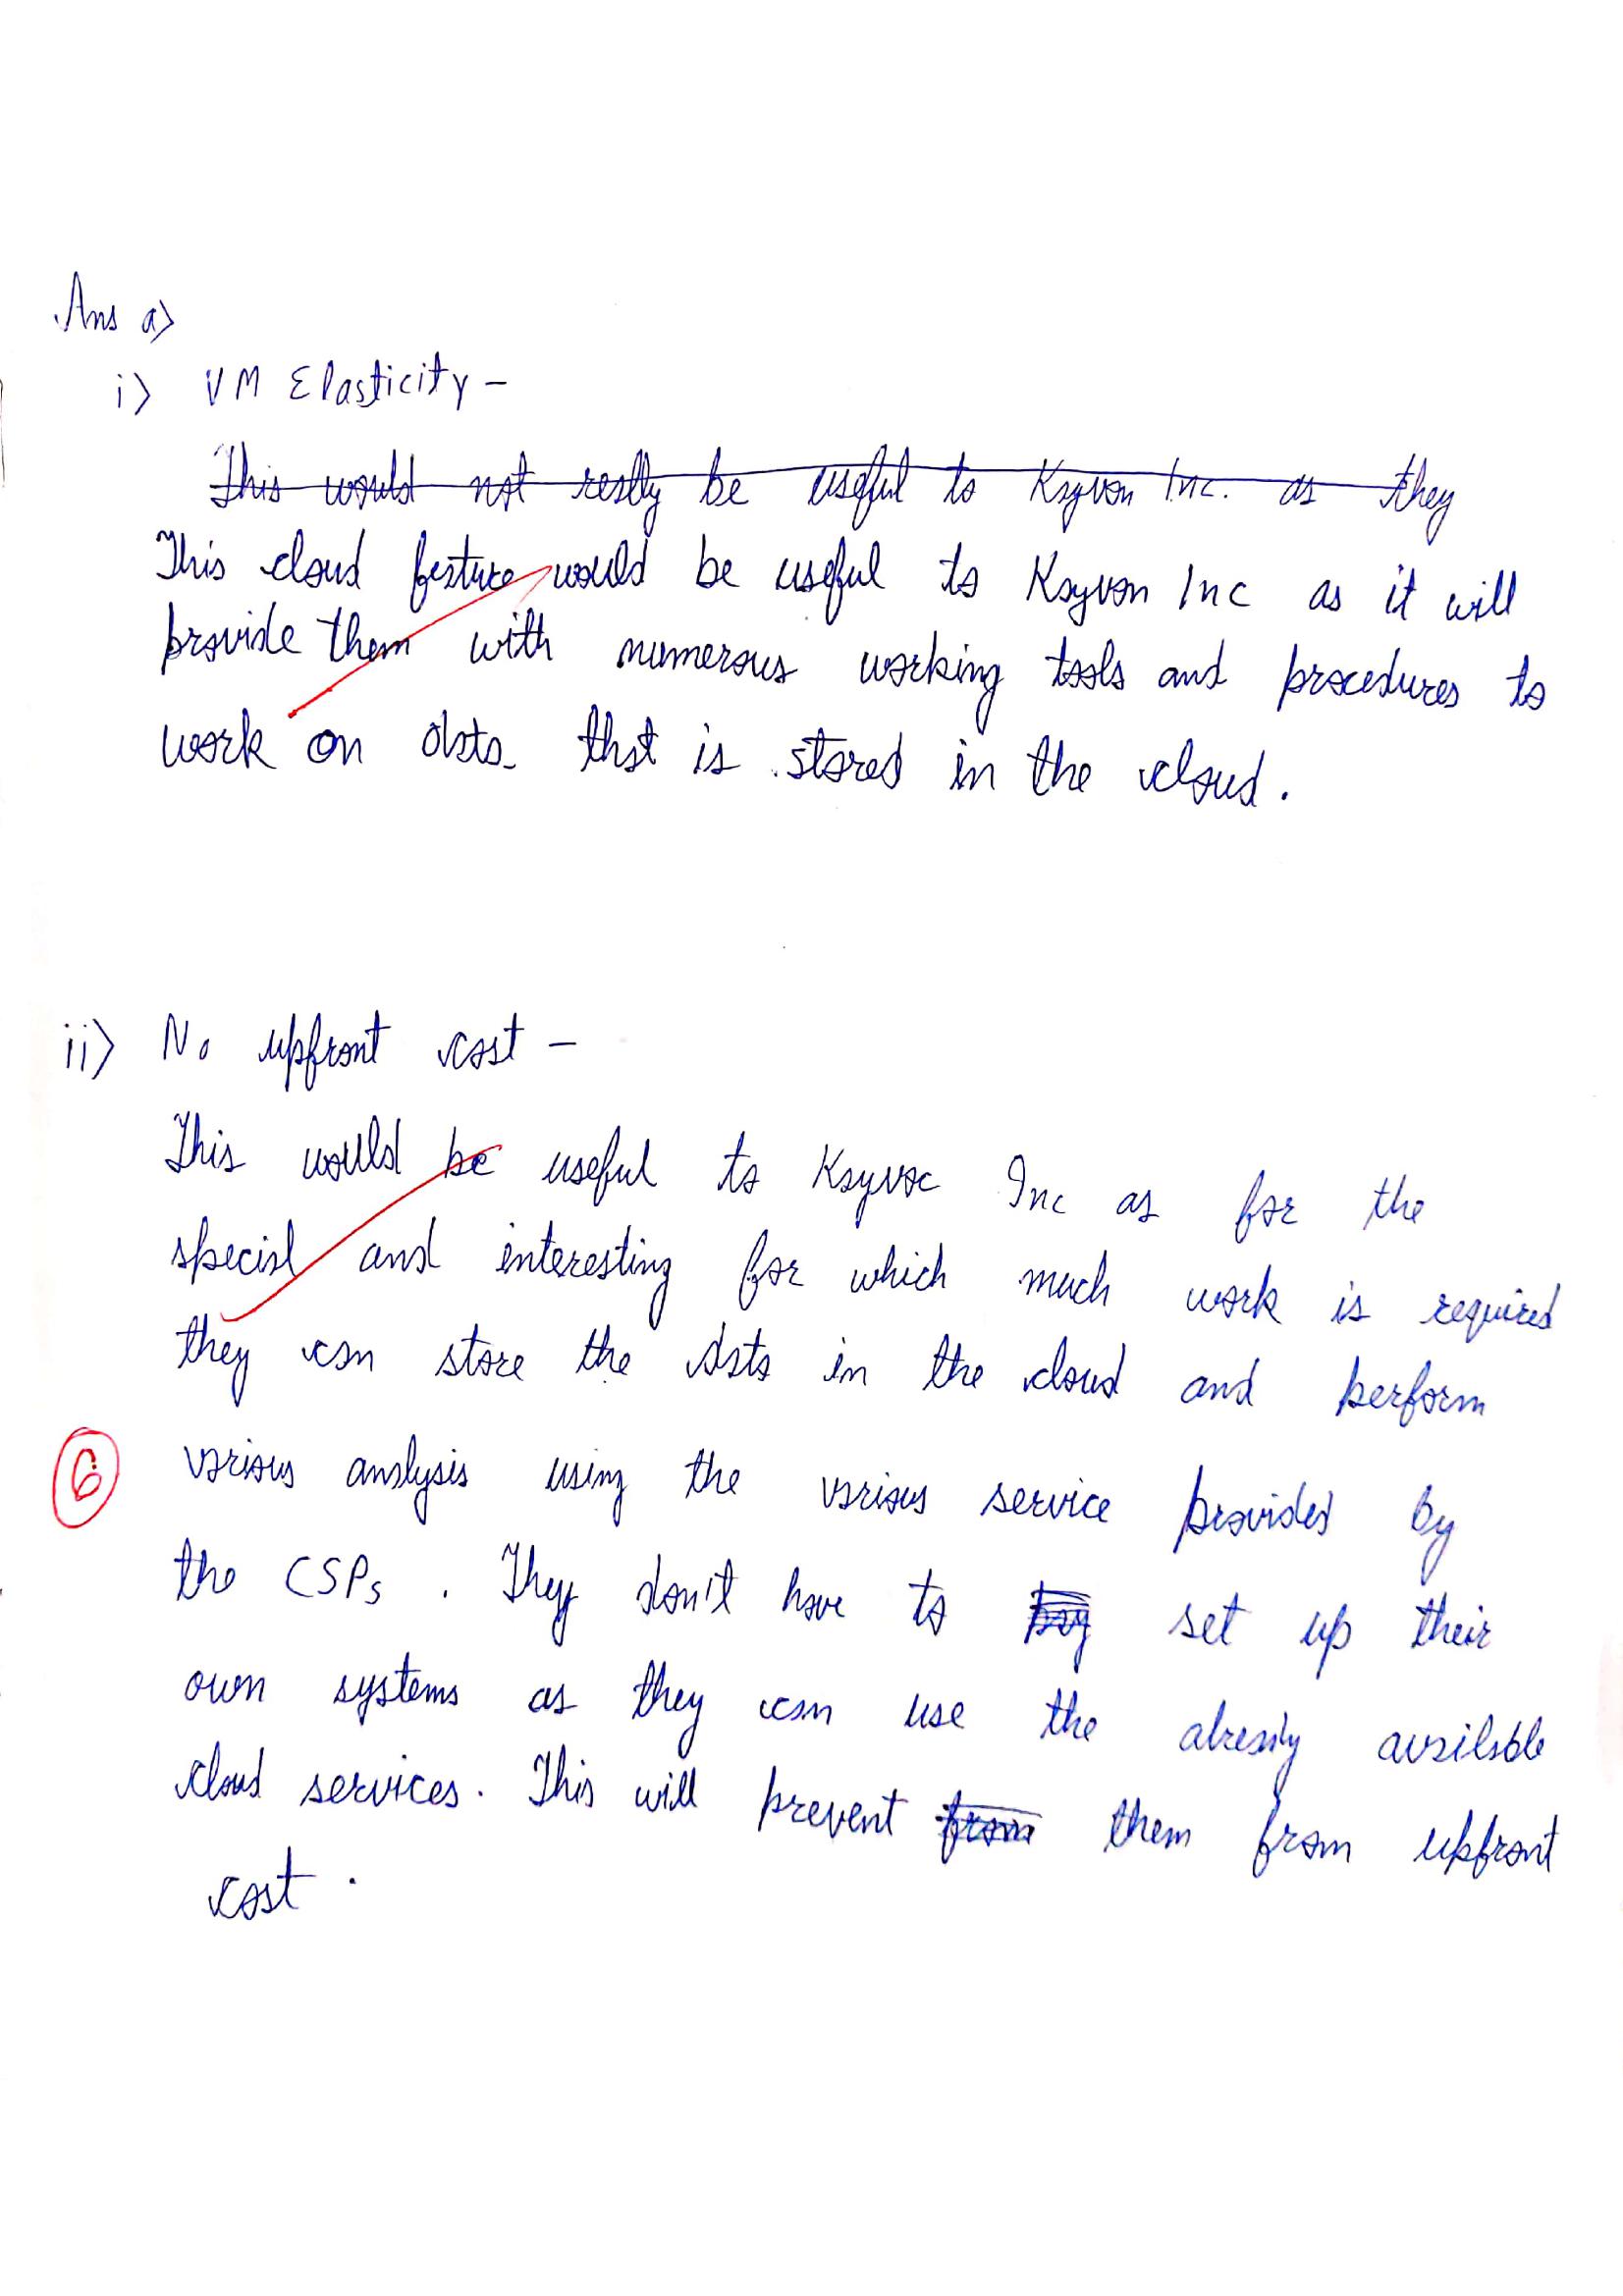 Ans a)
i) VM Elasticity -
This would not really be useful to Kayvon Inc. as they
This cloud feature would be useful to Kayvon Inc as it will
provide them with numerous working tools and procedures to
work on data that is stored in the cloud.
ii) No upfront cost -
This would be useful to Kayvoc Inc as for the
special and interesting for which much work is required
they can store the data in the cloud and perform
6 various analysis using the various service provided by
the CSPs. They don't have to pay set up their
own systems as they can use the already available
cloud services. This will prevent from them from upfront
cost.